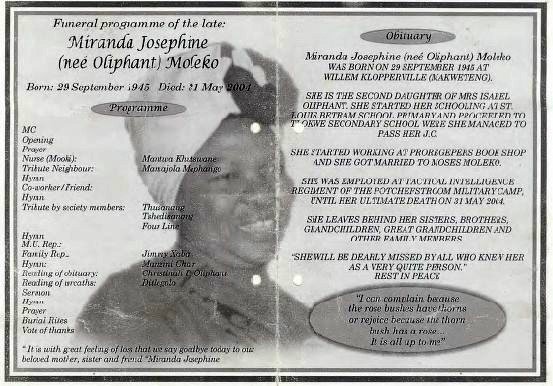 Funeral programme of the late:
Miranda Josephine
(neé Oliphant) Moleko
Born: 29 September 1945 Died: 31 May 2004
Programme
MC
Opening
Prayer
Nurse (Mooki): Mantwa Khutswane
Tribute Neighbour: Mamajola Mophango
Hymn
Co-worker/Friend:
Hymn
Tribute by society members: Thusanang
Tshedisanang
Four Line
Hymn
M.U. Rep.:
Family Rep.: Jimmy Xaba
Hymn: Manzini Choir
Reading of obituary: Christinah P Oliphant
Reading of wreaths: Ditlegolo
Sermon
Hymn
Prayer
Burial Rites
Vote of thanks
"It is with great feeling of loss that we say goodbye today to our
beloved mother, sister and friend "Miranda Josephine
Obituary
Miranda Josephine (neé Oliphant) Moleko
WAS BORN ON 29 SEPTEMBER 1945 AT
WILLEM KLOPPERVILLE (MAKWETENG).
SHE IS THE SECOND DAUGHTER OF MRS ISABEL
OLIPHANT. SHE STARTED HER SCHOOLING AT ST.
LOUIE BETRAM SCHOOL PRIMARY AND PROCEEDED TO
SECONDARY SCHOOL WERE SHE MANAGED TO
PASS HER J.C.
SHE STARTED WORKING AT BOOK SHOP
AND SHE GOT MARRIED TO MOSES MOLEKO.
SHE WAS EMPLOYED AT TACTICAL INTELLIGENCE
REGIMENT OF THE POTCHEFSTROOM MILITARY CAMP,
UNTIL HER ULTIMATE DEATH ON 31 MAY 2004.
SHE LEAVES BEHIND HER SISTERS, BROTHERS,
GRANDCHILDREN, GREAT GRANDCHILDREN AND
OTHER FAMILY MEMBERS.
"SHE WILL BE DEARLY MISSED BY ALL WHO KNEW HER
AS A VERY QUITE PERSON."
REST IN PEACE
"I can complain because
the rose bushes have thorns
or rejoice because the thorn
bush has a rose...
It is all up to me"